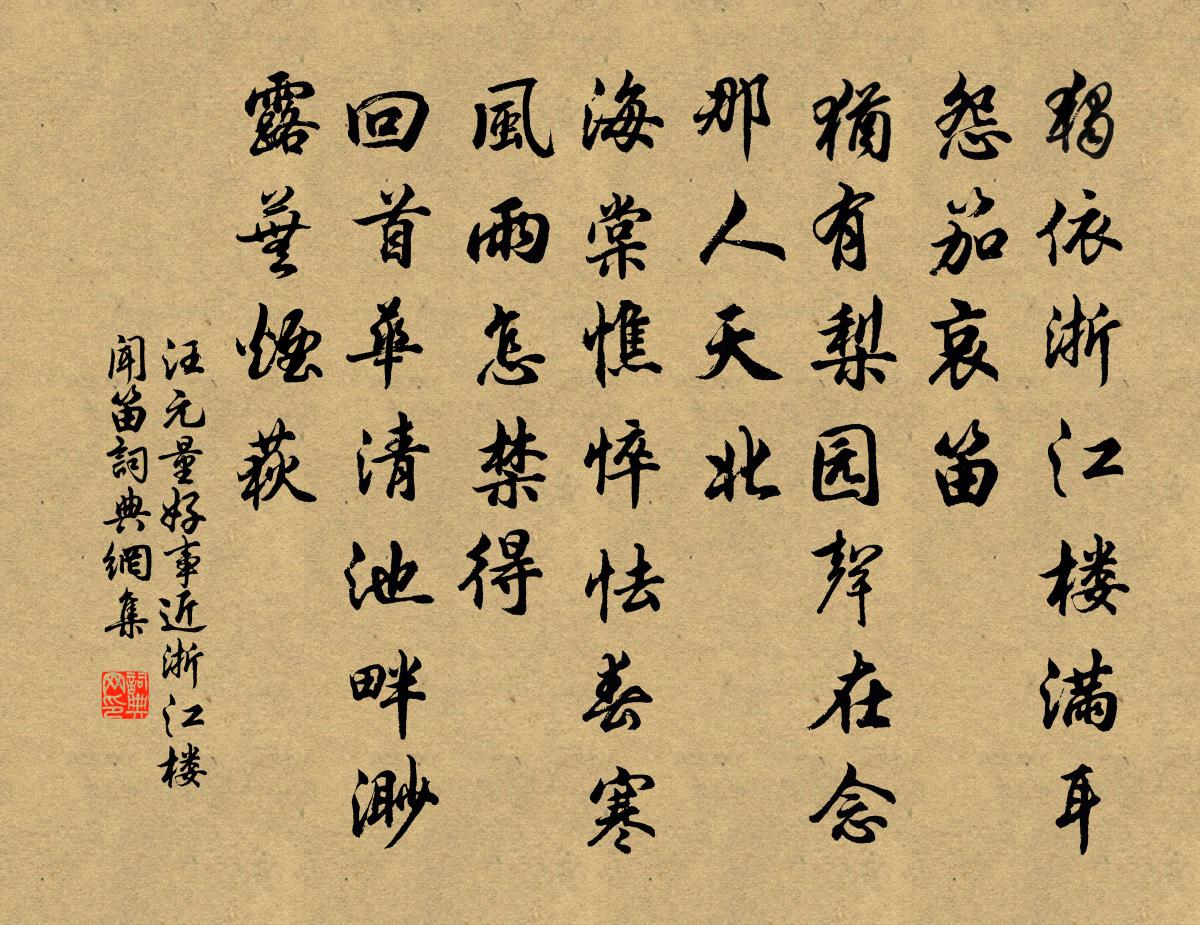 獨依浙江楼滿耳
怨笳哀笛
猶有梨园聲在念
那人天北
海棠憔悴怯春寒
風雨怎禁得
回首華清池畔渺
露蕪煙荻
汪元量好事近浙江楼
聞笛詞典網集
詞典
网印